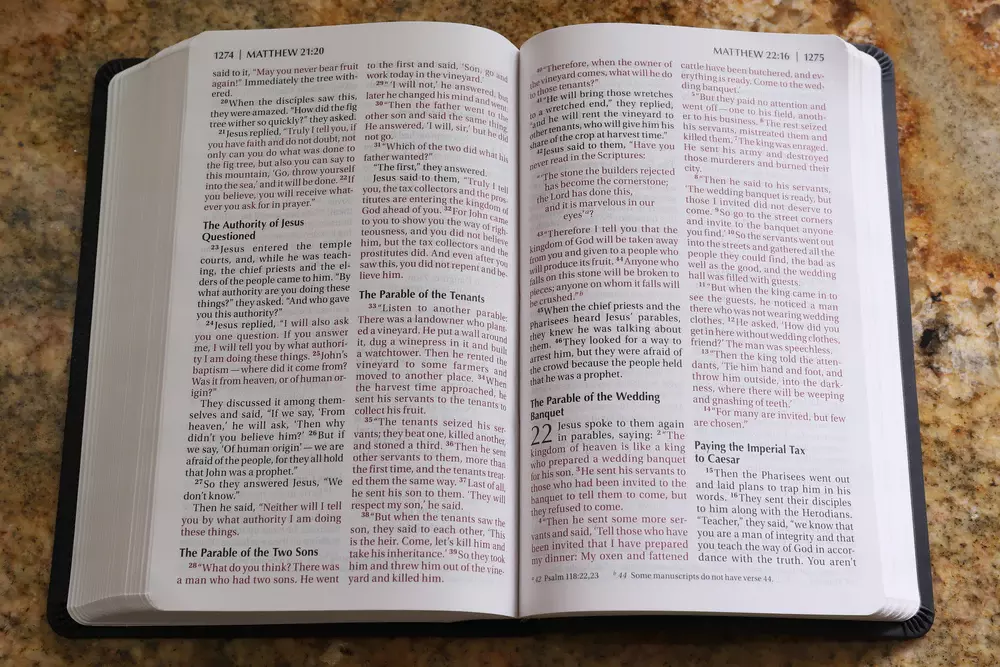 1274 | MATTHEW 21:20
said to it, "May you never bear fruit
again!" Immediately the tree with-
ered.
20When the disciples saw this,
they were amazed. "How did the fig
tree wither so quickly?" they asked.
21Jesus replied, "Truly I tell you, if
you have faith and do not doubt, not
only can you do what was done to
the fig tree, but also you can say to
this mountain, 'Go, throw yourself
into the sea,' and it will be done. 22If
you believe, you will receive what-
ever you ask for in prayer."
The Authority of Jesus
Questioned
23Jesus entered the temple
courts, and, while he was teach-
ing, the chief priests and the el-
ders of the people came to him. "By
what authority are you doing these
things?" they asked. "And who gave
you this authority?"
24Jesus replied, "I will also ask
you one question. If you answer
me, I will tell you by what authori-
ty I am doing these things. 25John's
baptism — where did it come from?
Was it from heaven, or of human or-
igin?"
They discussed it among them-
selves and said, "If we say, 'From
heaven,' he will ask, 'Then why
didn't you believe him?' 26But if
we say, 'Of human origin' — we are
afraid of the people, for they all hold
that John was a prophet."
27So they answered Jesus, "We
don't know."
Then he said, "Neither will I tell
you by what authority I am doing
these things.
The Parable of the Two Sons
28"What do you think? There was
a man who had two sons. He went
to the first and said, 'Son, go and
work today in the vineyard.'
29"'I will not,' he answered, but
later he changed his mind and went.
30"Then the father went to the
other son and said the same thing.
He answered, 'I will, sir,' but he did
not go.
31"Which of the two did what his
father wanted?"
"The first," they answered.
Jesus said to them, "Truly I tell
you, the tax collectors and the pros-
titutes are entering the kingdom of
God ahead of you. 32For John came
to you to show you the way of righ-
teousness, and you did not believe
him, but the tax collectors and the
prostitutes did. And even after you
saw this, you did not repent and be-
lieve him.
The Parable of the Tenants
33"Listen to another parable:
There was a landowner who plant-
ed a vineyard. He put a wall around
it, dug a winepress in it and built
a watchtower. Then he rented the
vineyard to some farmers and
moved to another place. 34When
the harvest time approached, he
sent his servants to the tenants to
collect his fruit.
35"The tenants seized his ser-
vants; they beat one, killed another,
and stoned a third. 36Then he sent
other servants to them, more than
the first time, and the tenants treat-
ed them the same way. 37Last of all,
he sent his son to them. 'They will
respect my son,' he said.
38"But when the tenants saw the
son, they said to each other, 'This
is the heir. Come, let's kill him and
take his inheritance.' 39So they took
him and threw him out of the vine-
yard and killed him.
MATTHEW 22:16 | 1275
40"Therefore, when the owner of
the vineyard comes, what will he do
to those tenants?"
41"He will bring those wretches
to a wretched end," they replied,
"and he will rent the vineyard to
other tenants, who will give him his
share of the crop at harvest time."
42Jesus said to them, "Have you
never read in the Scriptures:
"'The stone the builders rejected
has become the cornerstone;
the Lord has done this,
and it is marvelous in our
eyes'a?
43"Therefore I tell you that the
kingdom of God will be taken away
from you and given to a people who
will produce its fruit. 44Anyone who
falls on this stone will be broken to
pieces; anyone on whom it falls will
be crushed."b
45When the chief priests and the
Pharisees heard Jesus' parables,
they knew he was talking about
them. 46They looked for a way to
arrest him, but they were afraid of
the crowd because the people held
that he was a prophet.
The Parable of the Wedding
Banquet
22 Jesus spoke to them again
in parables, saying: 2"The
kingdom of heaven is like a king
who prepared a wedding banquet
for his son. 3He sent his servants to
those who had been invited to the
banquet to tell them to come, but
they refused to come.
4"Then he sent some more ser-
vants and said, 'Tell those who have
been invited that I have prepared
my dinner: My oxen and fattened
cattle have been butchered, and ev-
erything is ready. Come to the wed-
ding banquet.'
5"But they paid no attention and
went off — one to his field, anoth-
er to his business. 6The rest seized
his servants, mistreated them and
killed them. 7The king was enraged.
He sent his army and destroyed
those murderers and burned their
city.
8"Then he said to his servants,
'The wedding banquet is ready, but
those I invited did not deserve to
come. 9So go to the street corners
and invite to the banquet anyone
you find.' 10So the servants went out
into the streets and gathered all the
people they could find, the bad as
well as the good, and the wedding
hall was filled with guests.
11"But when the king came in to
see the guests, he noticed a man
there who was not wearing wedding
clothes. 12He asked, 'How did you
get in here without wedding clothes,
friend?' The man was speechless.
13"Then the king told the atten-
dants, 'Tie him hand and foot, and
throw him outside, into the dark-
ness, where there will be weeping
and gnashing of teeth.'
14"For many are invited, but few
are chosen."
Paying the Imperial Tax
to Caesar
15Then the Pharisees went out
and laid plans to trap him in his
words. 16They sent their disciples
to him along with the Herodians.
"Teacher," they said, "we know that
you are a man of integrity and that
you teach the way of God in accor-
dance with the truth. You aren't
a 42 Psalm 118:22,23 b 44 Some manuscripts do not have verse 44.